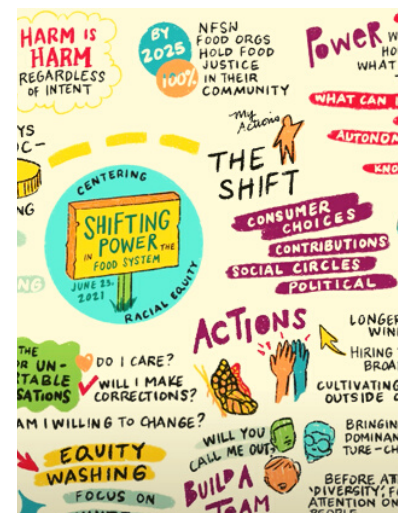 HARM IS
HARM
REGARDLESS
OF INTENT
BY
2025
100%
NFSN
FOOD ORGS
HOLD FOOD
JUSTICE
IN THEIR
COMMUNITY
POWER
WHAT
WHAT CAN
AUTONO
KNO
My
Actions
THE
SHIFT
CONSUMER
CHOICES
CONTRIBUTIONS
SOCIAL CIRCLES
POLITICAL
CENTERING
SHIFTING
POWER
IN THE
FOOD SYSTEM
JUNE 23,
2021
RACIAL EQUITY
ACTIONS
LONGER
WIN
HIRING
BROA
CULTIVATING
OUTSIDE
THE
UN-
TABLE
SATIONS
DO I CARE?
WILL I MAKE
CORRECTIONS?
AM I WILLING TO CHANGE?
EQUITY
WASHING
FOCUS ON
WILL YOU
CALL ME OUT?
BUILD A
TEAM
BRINGING
DOMINAN
TURE-CH
BEFORE AT
"DIVERSITY," F
ATTENTION ON
PEOPLE